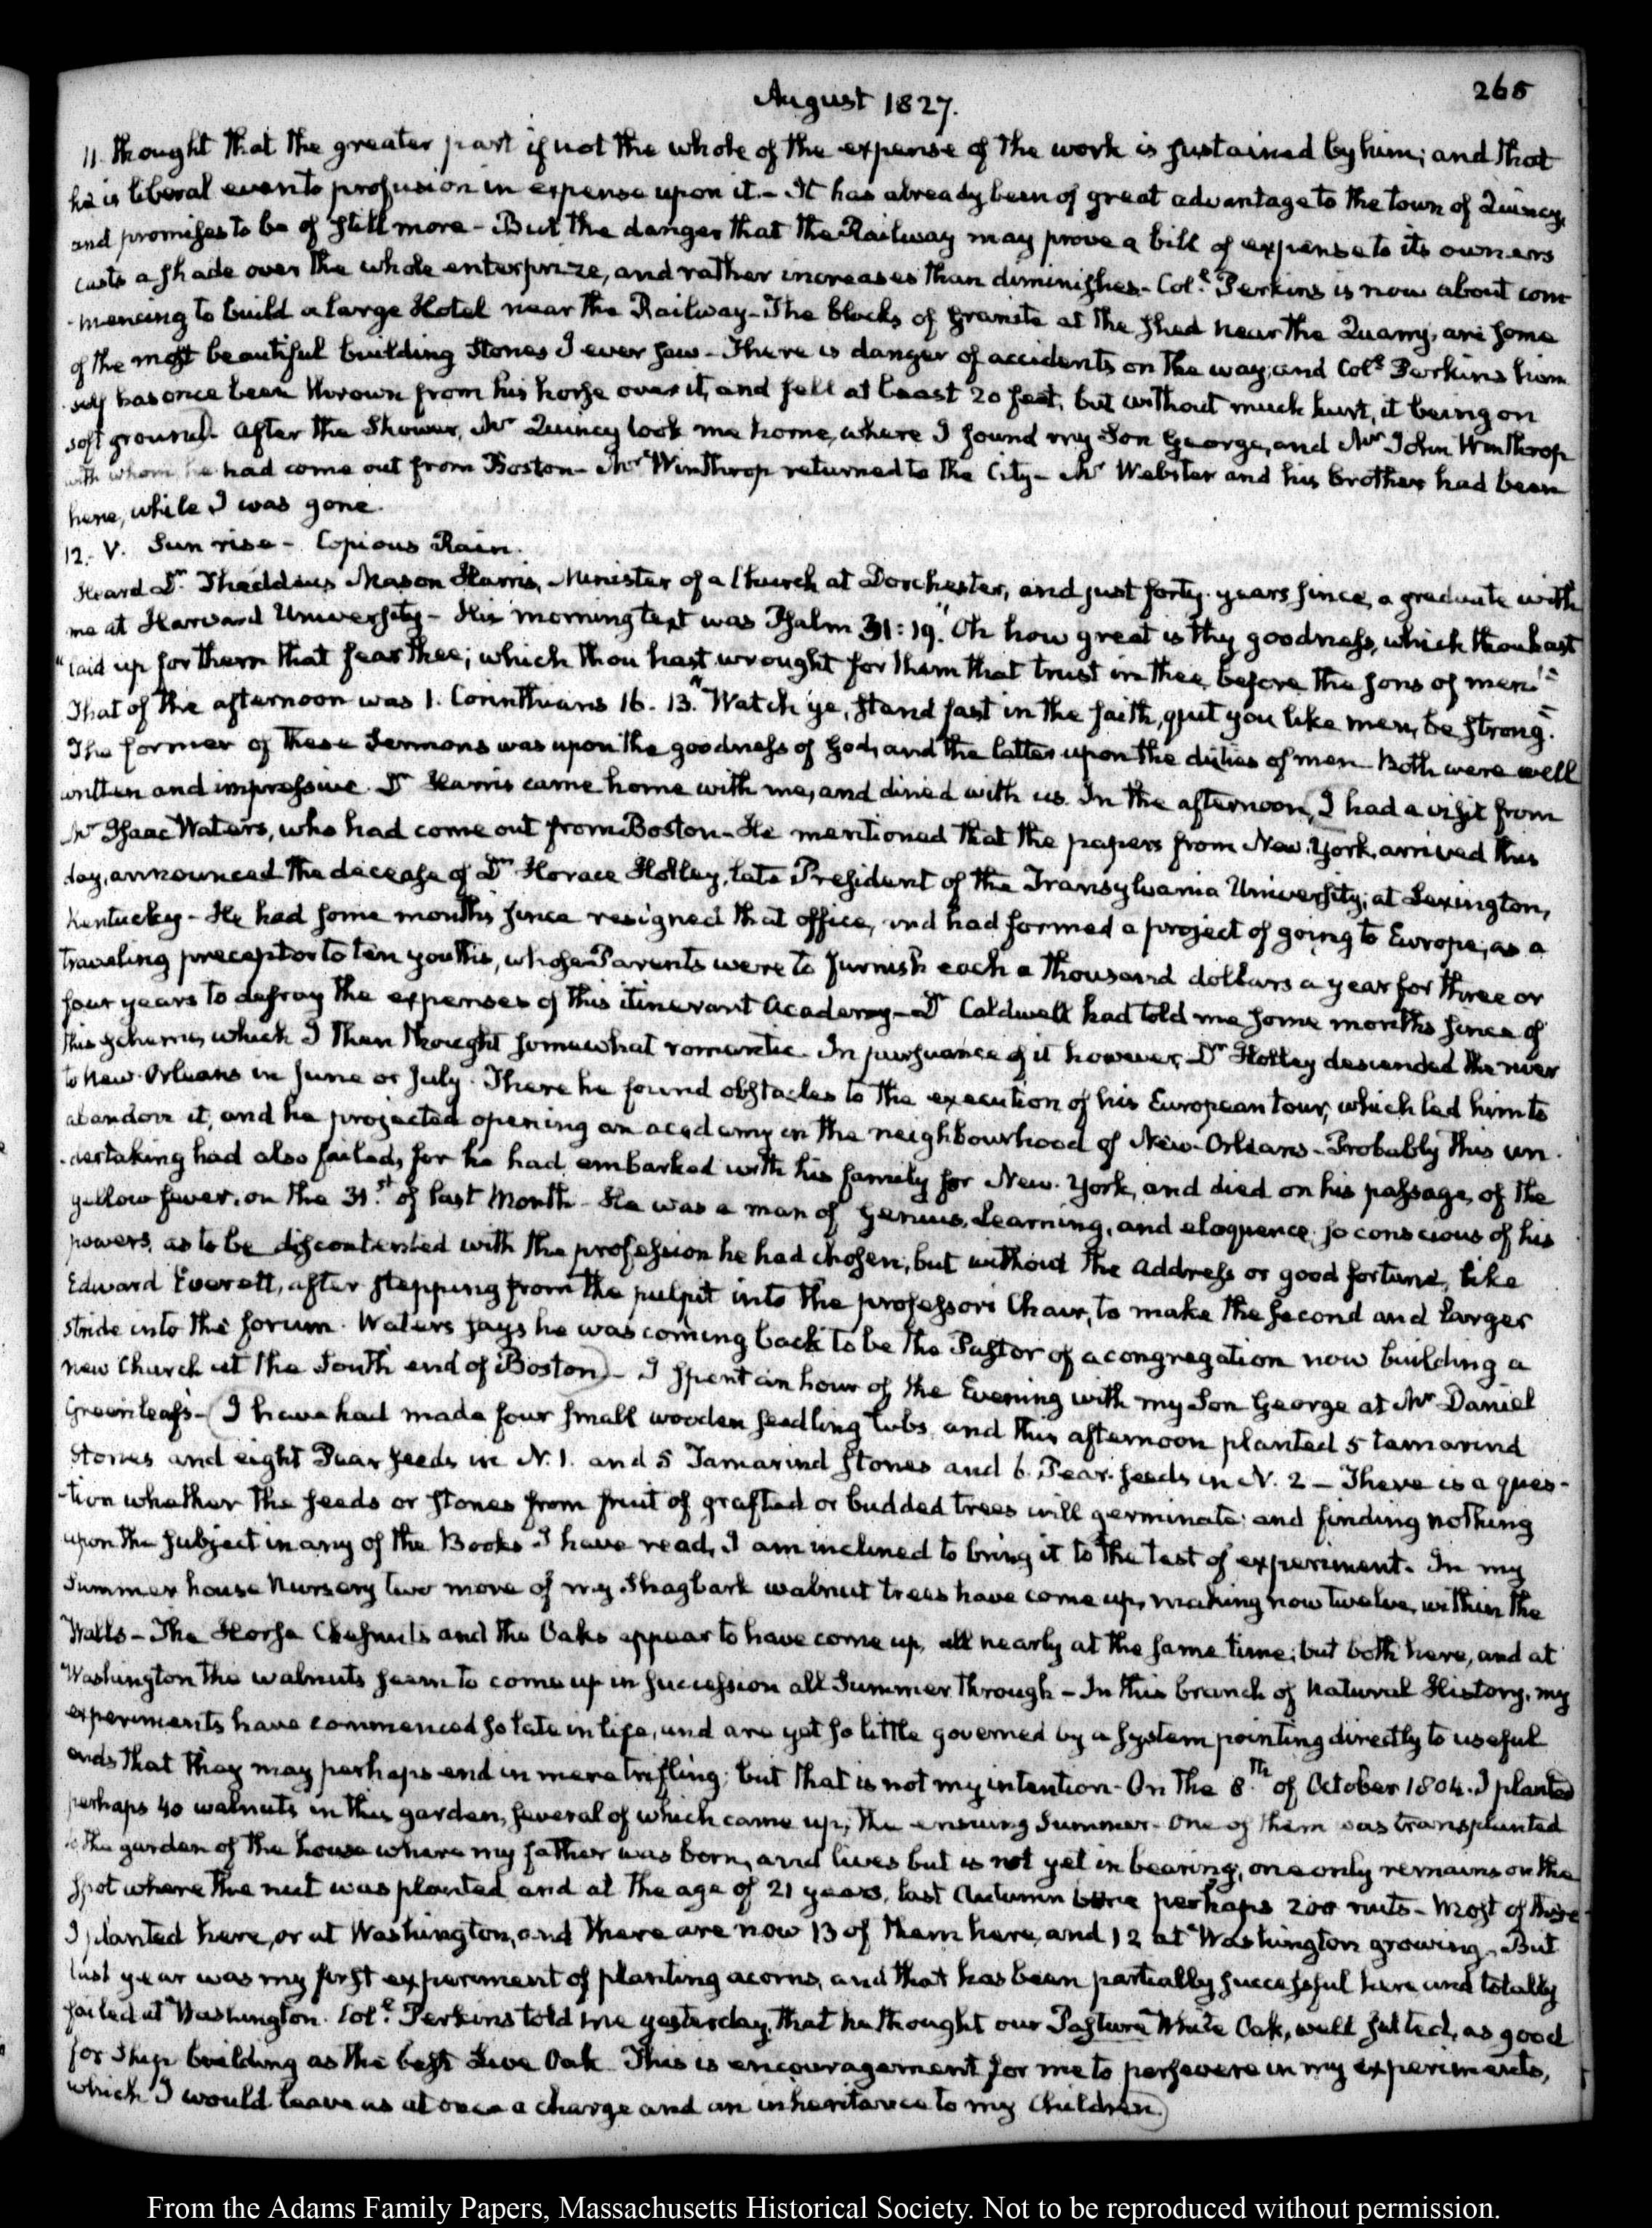 August 1827.
265
11. thought that the greater part if not the whole of the expense of the work is sustained by him; and that
he is liberal even to profusion in expense upon it.- It has already been of great advantage to the town of Quincy,
and promises to be of still more- But the danger that the Railway may prove a bill of expense to its owners
casts a shade over the whole enterprize, and rather increases than diminishes- Col.l Perkins is now about com
-mencing to build a large Hotel near the Railway- The blocks of Granite at the shed near the Quarry, are some
of the most beautiful building stones I ever saw- There is danger of accidents on the way, and Col.l Perkins him
-self has once been thrown from his horse over it, and fell at least 20 feet, but without much hurt, it being on
soft ground). After the Shower, Mr Quincy took me home, where I found my Son George, and Mr John Winthrop
with whom he had come out from Boston- Mr Winthrop returned to the City- Mr Webster and his brother had been
here, while I was gone.
12. V. Sun rise- Copious Rain.
Heard Dr Thaddeus Mason Harris, Minister of a Church at Dorchester, and just forty years since, a graduate with
me at Harvard University- His morning text was Psalm 31:19. "Oh how great is thy goodness, which thou hast
"laid up for them that fear thee; which thou hast wrought for them that trust in thee before the sons of men!"
That of the afternoon was 1. Corinthians 16. 13. "Watch ye, stand fast in the faith, quit you like men, be strong."
The former of these Sermons was upon the goodness of God, and the latter upon the duties of men Both were well
written and impressive. Dr Harris came home with me, and dined with us. In the afternoon, (I had a visit from
Mr Isaac Waters, who had come out from Boston- He mentioned that the papers from New-York, arrived this
day, announced the decease of Dr Horace Holley, late President of the Transylvania University, at Lexington,
Kentucky- He had some months since resigned that office, and had formed a project of going to Europe, as a
travelling preceptor to ten youths, whose Parents were to furnish each a thousand dollars a year for three or
four years to defray the expenses of this itinerant Academy- Dr Caldwell had told me some months since of
this scheme, which I then thought somewhat romantic. In pursuance of it however, Dr Holley descended the river
to New-Orleans in June or July. There he found obstacles to the execution of his European tour, which led him to
abandon it, and he projected opening an academy in the neighbourhood of New-Orleans- Probably this un
-dertaking had also failed, for he had embarked with his family for New-York, and died on his passage, of the
yellow fever, on the 31.st of last Month- He was a man of Genius, Learning, and eloquence, so conscious of his
powers, as to be discontented with the profession he had chosen; but without the address or good fortune, like
Edward Everett, after stepping from the pulpit into the professors Chair, to make the second and larger
stride into the forum. Waters says he was coming back to be the Pastor of a congregation now building a
new Church at the South end of Boston)- I spent an hour of the Evening with my Son George at Mr Daniel
Greenleaf's- (I have had made four small wooden seedling tubs, and this afternoon planted 5 tamarind
stones and eight Pear seeds in N. 1. and 5 Tamarind stones and 6 Pear-seeds in N. 2- There is a ques-
-tion whether the seeds or stones from fruit of grafted or budded trees will germinate; and finding nothing
upon the subject in any of the Books I have read, I am inclined to bring it to the test of experiment. In my
Summer house Nursery two more of my Shagbark walnut trees have come up, making now twelve, within the
Walls- The Horse Chesnuts and the Oaks appear to have come up, all nearly at the same time; but both here, and at
Washington the walnuts seem to come up in succession all Summer through- In this branch of Natural History, my
experiments have commenced so late in life, and are yet so little governed by a system pointing directly to useful
ends that they may perhaps end in mere trifling; but that is not my intention- On the 8.th of October 1804. I planted
perhaps 40 walnuts in this garden, several of which came up, the ensuing Summer- One of them was transplanted
to the garden of the house where my father was born, and lives but is not yet in bearing, one only remains on the
spot where the nut was planted and at the age of 21 years, last Autumn bore perhaps 200 nuts- Most of these
I planted here, or at Washington, and there are now 13 of them here, and 12 at Washington growing- But
last year was my first experiment of planting acorns, and that has been partially successful here and totally
failed at Washington. Col.l Perkins told me yesterday, that he thought our Pasture White Oak, well salted, as good
for Ship building as the best Live Oak This is encouragement for me to persevere in my experiments,
which I would leave as at once a charge and an inheritance to my Children)
From the Adams Family Papers, Massachusetts Historical Society. Not to be reproduced without permission.